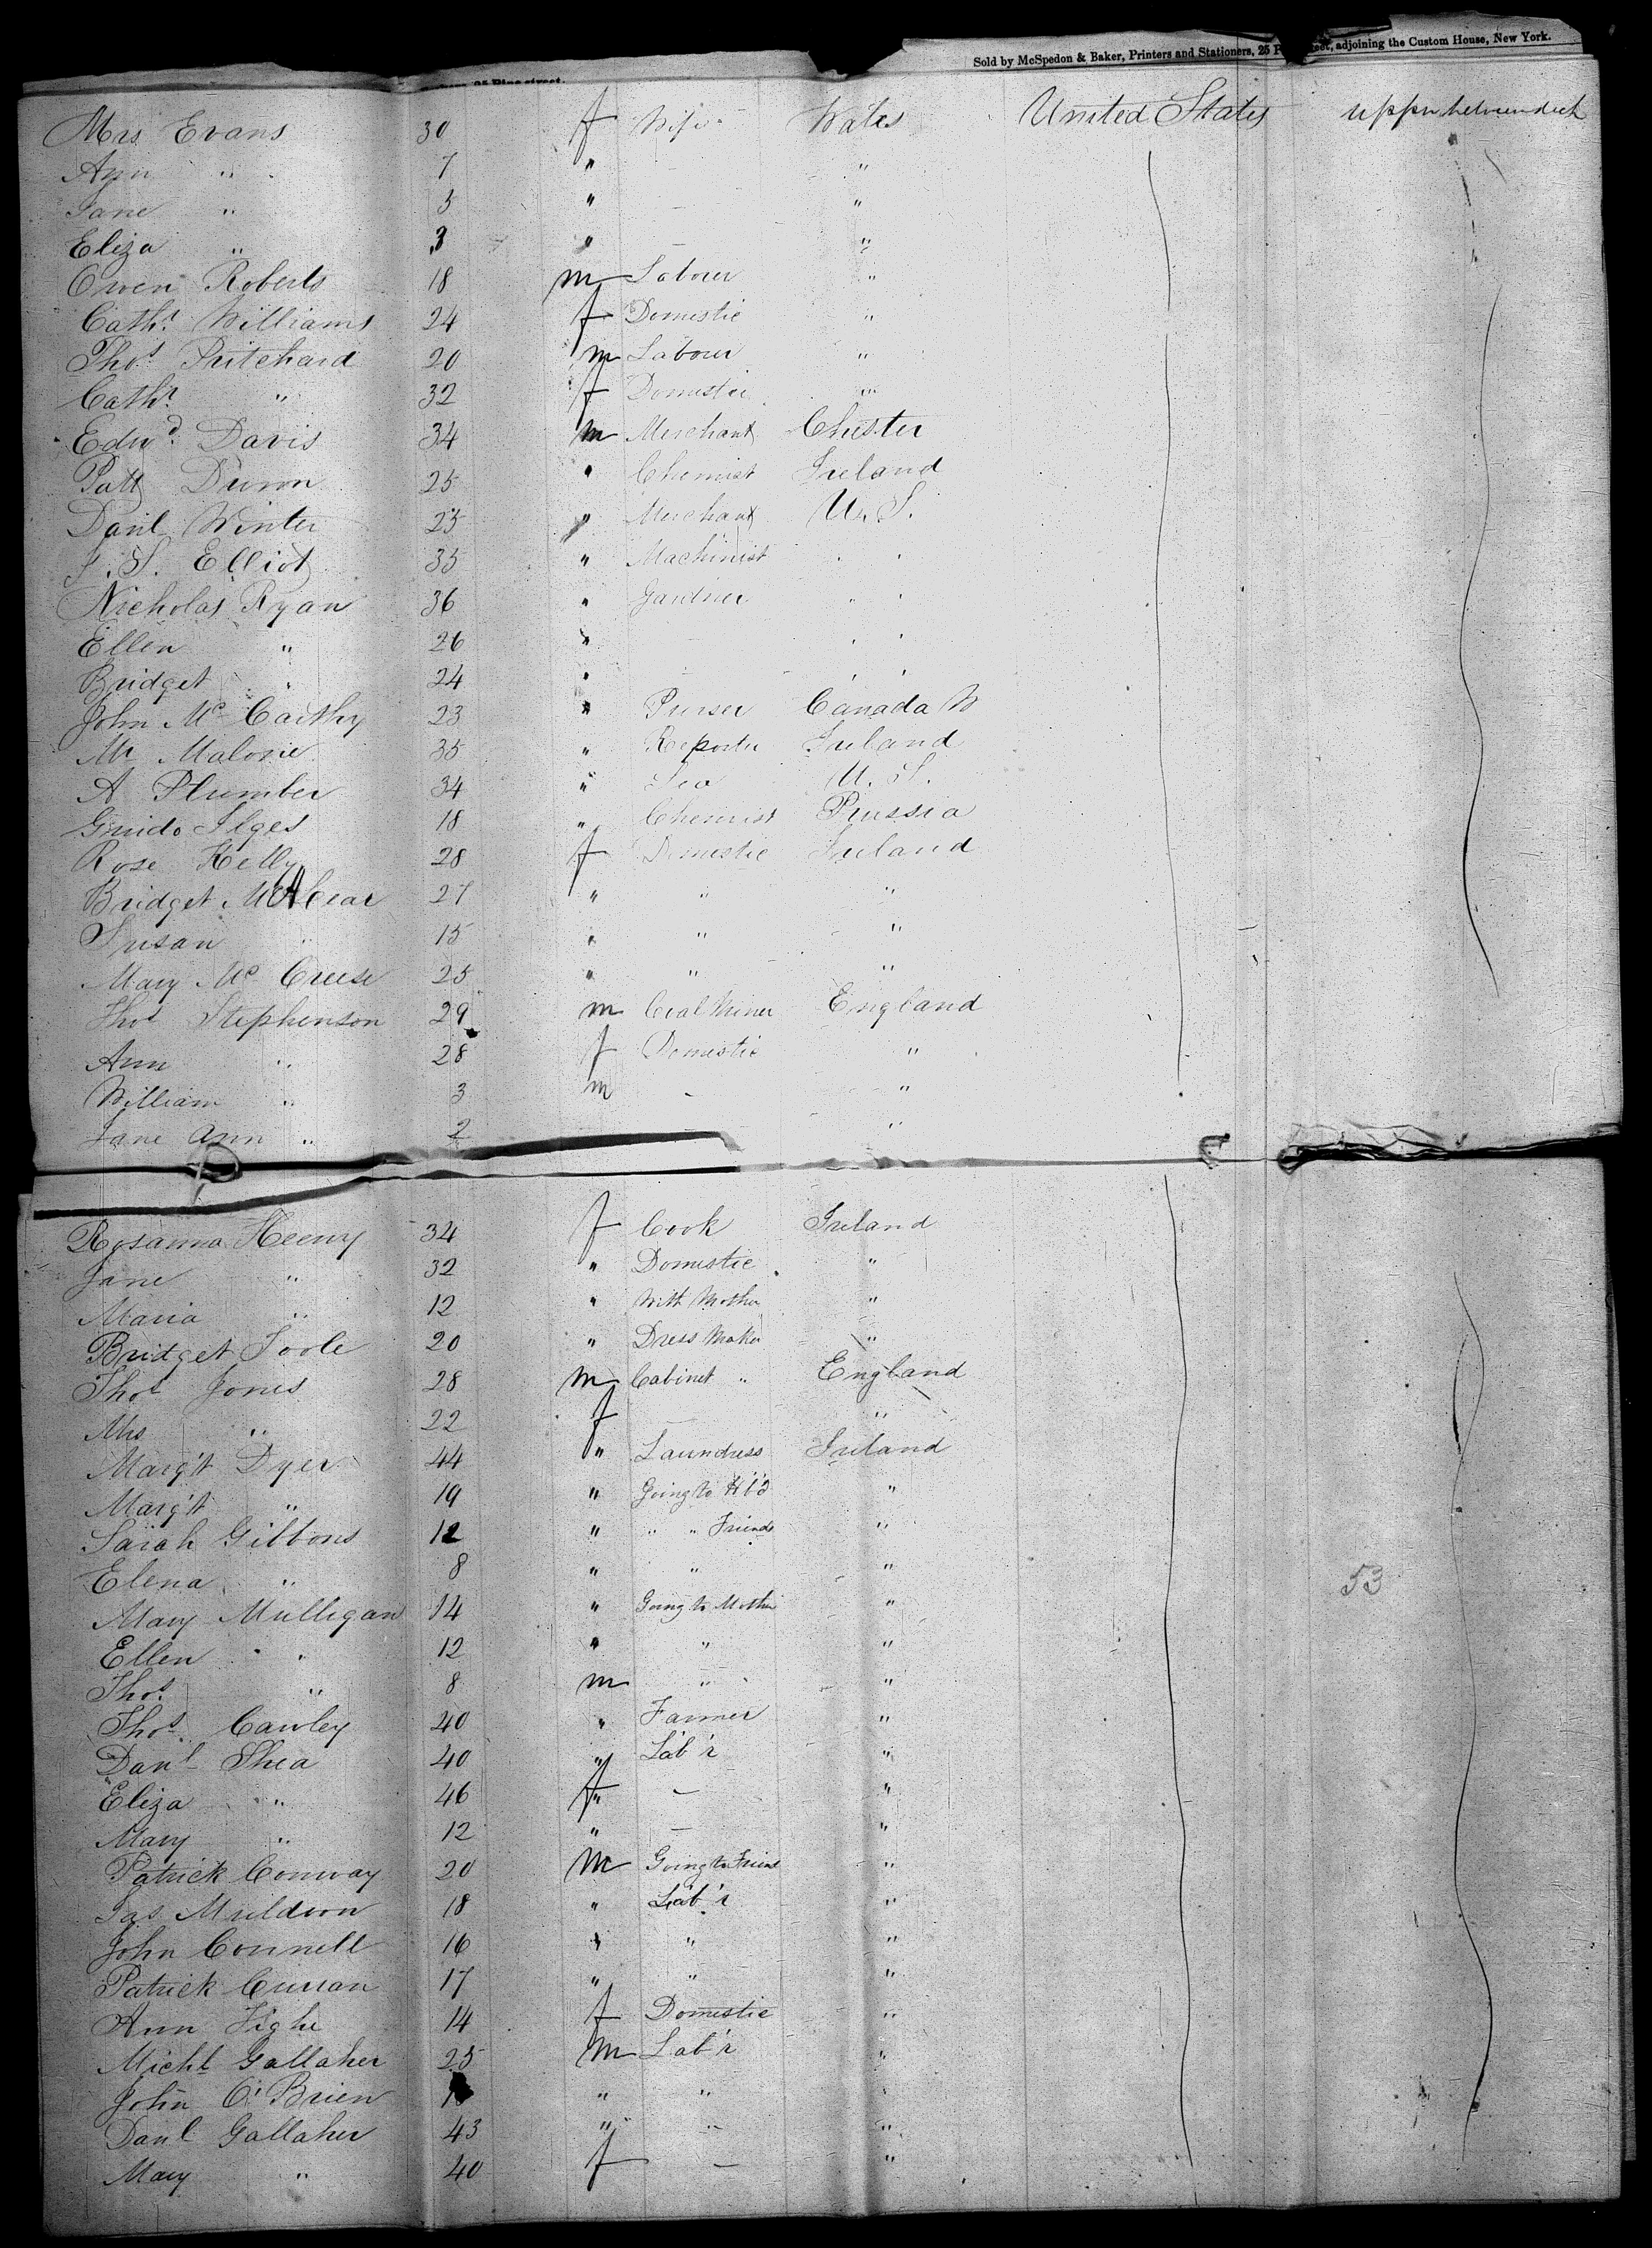 Sold by McSpedon & Baker, Printers and Stationers, 25 P street, adjoining the Custom House, New York.
Mrs Evans 30 f Wife Wales United States upper between deck
Ann " 7 " - "
Jane " 5 " - "
Eliza " 3 " - "
Owen Roberts 18 m Labourer "
Cath.r Williams 24 f Domestic "
Thos. Pritchard 20 m Labourer "
Cath.r " 32 f Domestic "
Edwd. Davis 34 m Merchant Chester
Patt Dunn 25 " Chemist Ireland
Danl Winter 25 " Merchant U. S.
J. S. Elliot 35 " Machinist " "
Nicholas Ryan 36 " Gardner " "
Ellen " 26 " - " "
Bridget " 24 " - " "
John Mc Carthy 23 " Purser Canada W
Mr Malone 35 " Reporter Ireland
A Plumber 34 " Sea U. S.
Guido Ilges 18 " Chemist Prussia
Rose Kelly 28 f Domestic Ireland
Bridget McAlear 27 " " "
Susan " 15 " " "
Mary Mc Creese 25 " " "
Thos Stephenson 29 m Coal Miner England
Ann " 28 f Domestic "
William " 3 m - "
Jane Ann " 2 "
Rosanna Keeny 34 f Cook Ireland
Jane " 32 " Domestic "
Maria " 12 " With Mother "
Bridget Toole 20 " Dress Maker "
Thos Jones 28 m Cabinet " England
Mrs " 22 f - "
Marg't Dyer 44 " Laundress Ireland
Marg't " 19 " Going to "
Sarah Gibbons 12 " " " Friends "
Elena " 8 " " "
Mary Mulligan 14 " Going to Mother "
Ellen " 12 " " "
Thos. " 8 m " "
Thos. Cawley 40 " Farmer "
Danl Shea 40 " Lab'r "
Eliza " 46 f " - "
Mary " 12 " - "
Patrick Conway 20 m Going to Friend "
Jas. Muldoon 18 " Lab'r "
John Connell 16 " " "
Patrick Curran 17 " " "
Ann Tighe 14 f Domestic "
Michl Gallaher 25 m Lab'r "
John O'Brien " " "
Danl Gallaher 43 " " "
Mary " 40 f - "
53